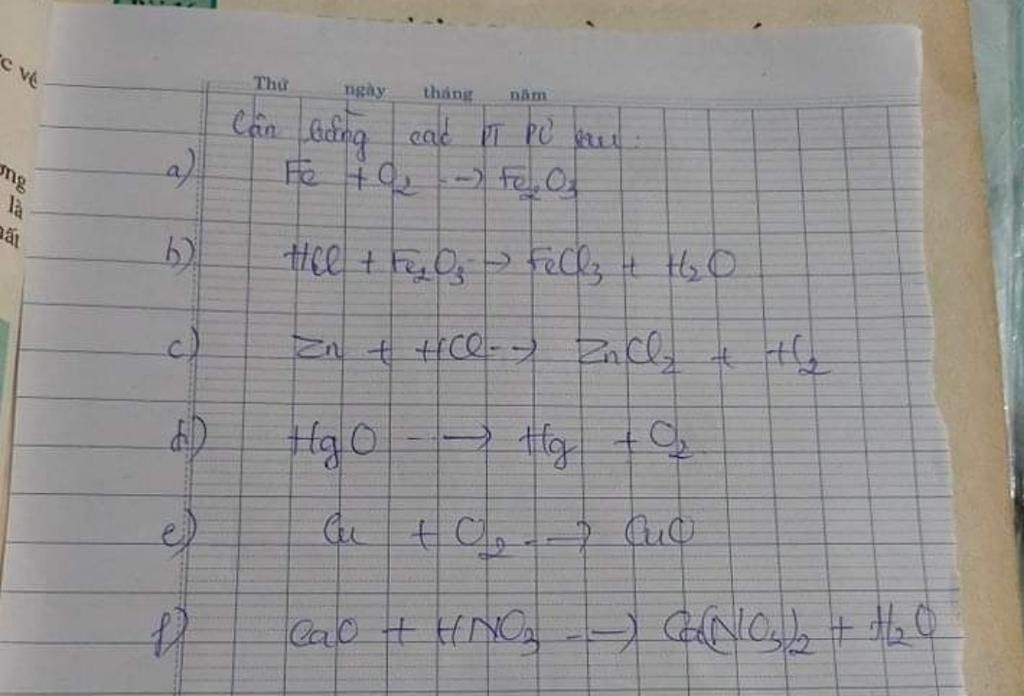 c vẽ
ơng
là
Thứ ngày tháng năm
Cân bằng các PT PƯ sau:
a) Fe + O₂ --> Fe₂O₃
b) HCl + Fe₂O₃ --> FeCl₃ + H₂O
c) Zn + HCl --> ZnCl₂ + H₂
d) HgO --> Hg + O₂
e) Cu + O₂ --> CuO
f) CaO + HNO₃ --> Ca(NO₃)₂ + H₂O